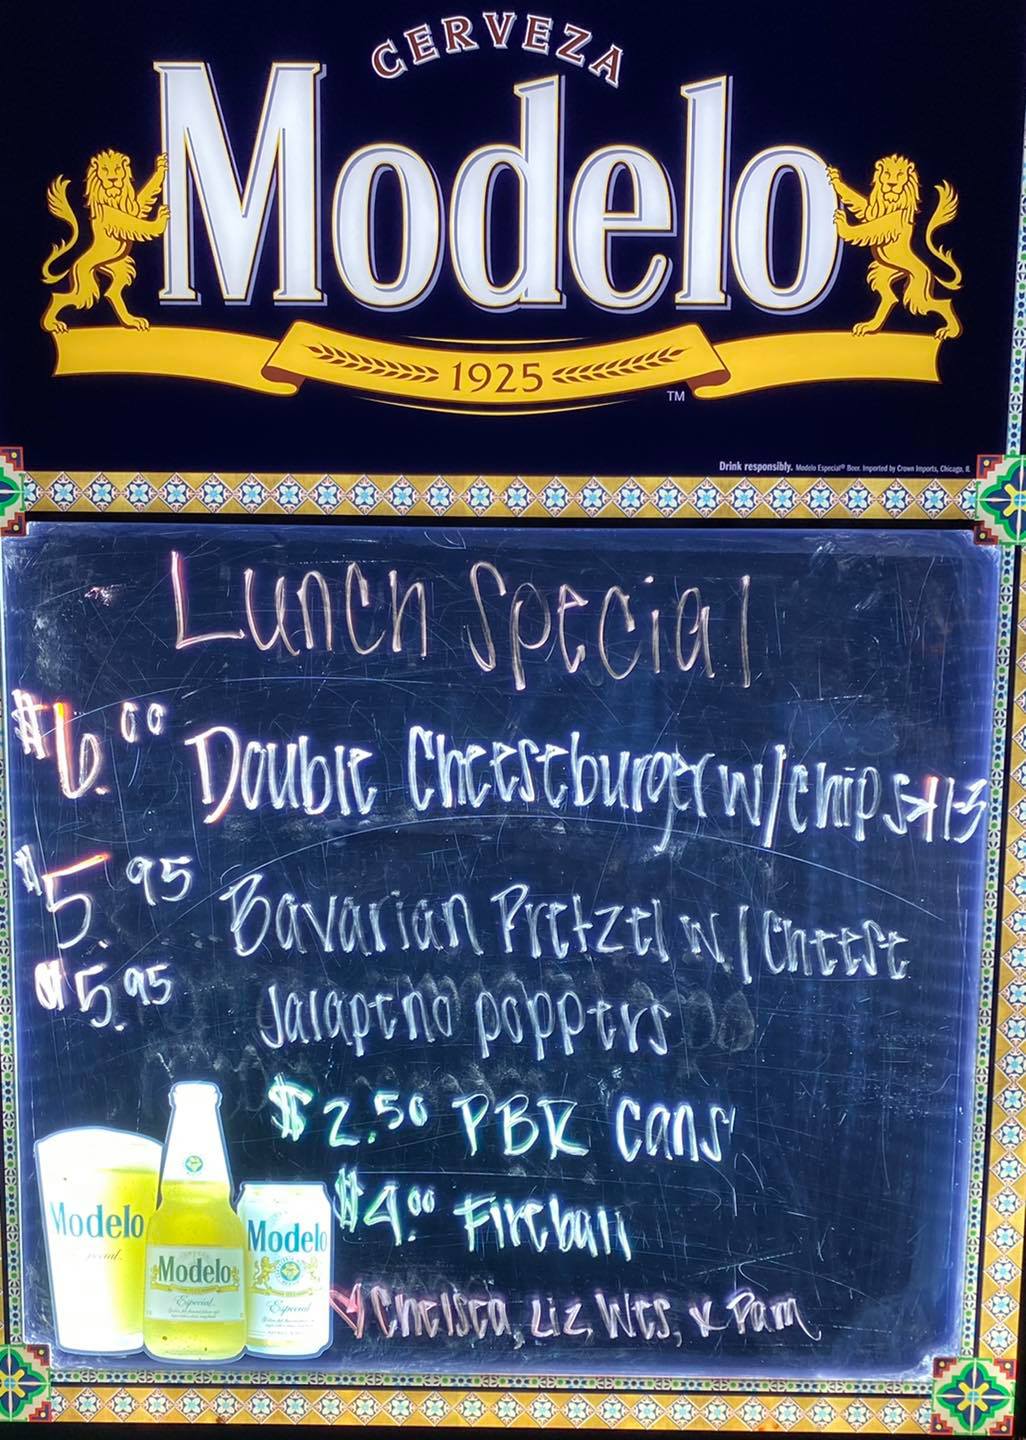 CERVEZA
Modelo
1925
TM
Drink responsibly. Modelo Especial® Beer. Imported by Crown Imports, Chicago, IL
Lunch Special
$6.00 Double Cheeseburger w/chips 11-3
$5.95 Bavarian Pretzel w/Cheese
$5.95 Jalapeno poppers
$2.50 PBR Cans
$4.00 Fireball
Chelsea, Liz, Wes, & Pam
Modelo
Especial
Modelo
Especial
Modelo
Especial